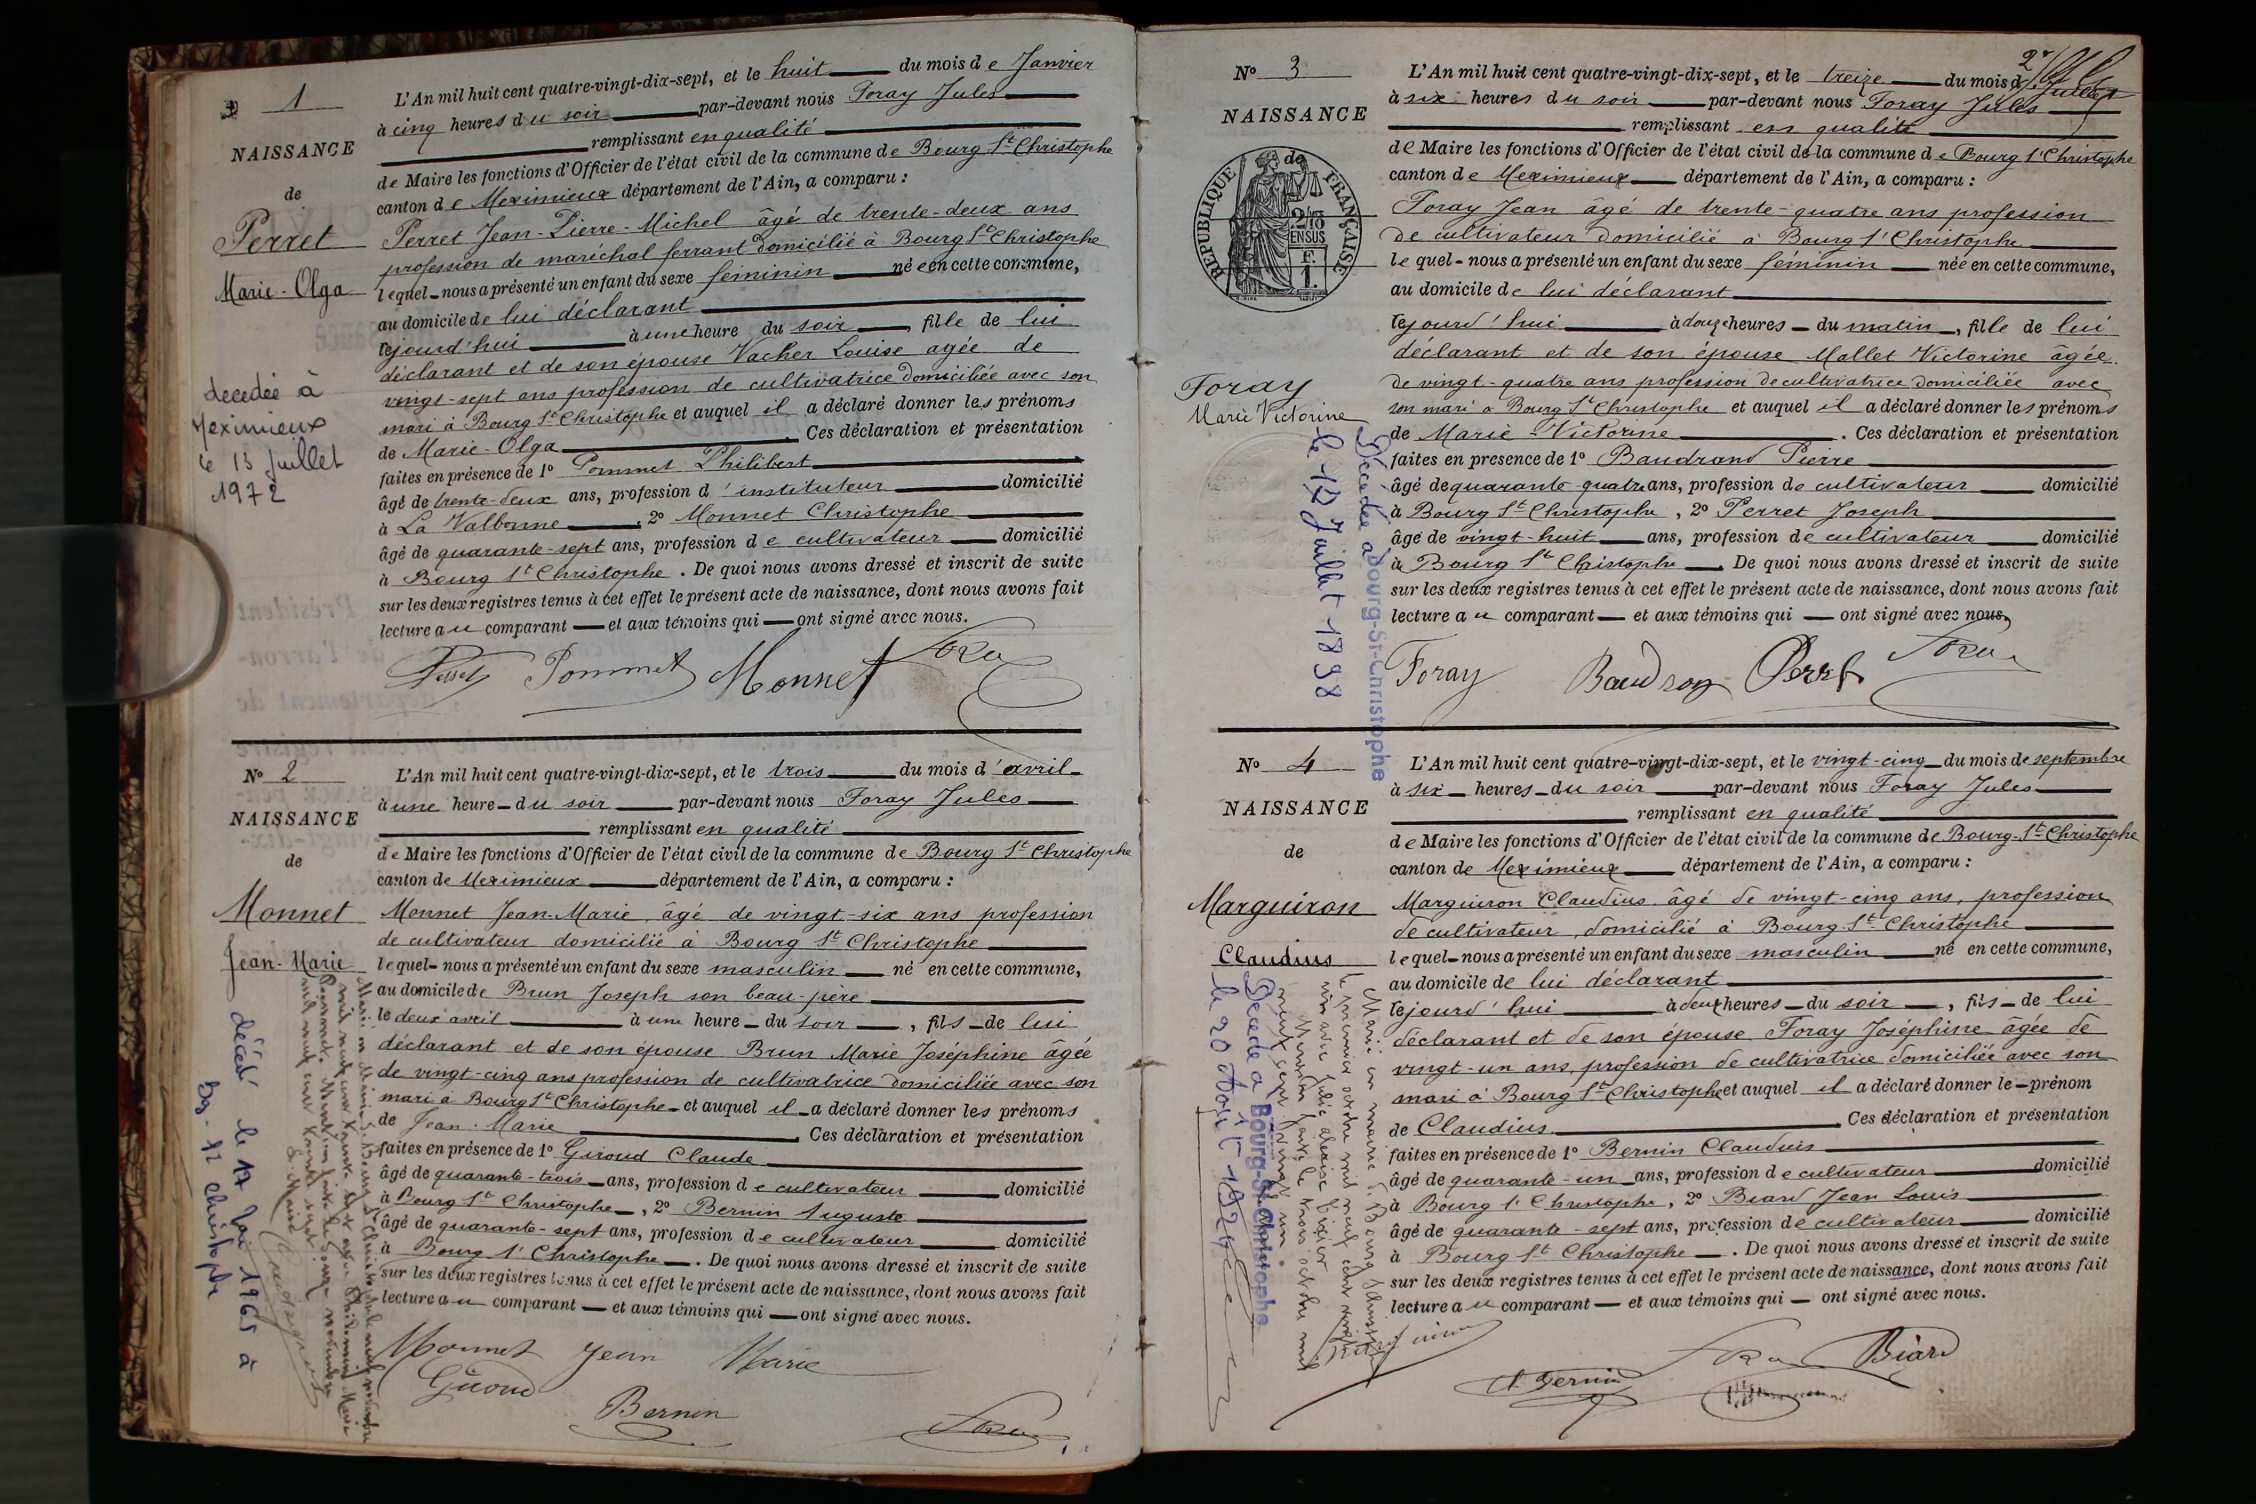 1
NAISSANCE
de
Perret
Marie-Olga
decedée à
Meximieux
le 13 juillet
1972
L'An mil huit cent quatre-vingt-dix-sept, et le huit du mois de Janvier
à cinq heures du soir par-devant nous Foray Jules
remplissant en qualité
de Maire les fonctions d'Officier de l'état civil de la commune de Bourg St Christophe
canton de Meximieux département de l'Ain, a comparu :
Perret Jean-Pierre-Michel âgé de trente-deux ans
profession de maréchal ferrant domicilié à Bourg St Christophe
lequel nous a présenté un enfant du sexe féminin née en cette commune,
au domicile de lui déclarant
cejourd'hui à une heure du soir, fille de lui
déclarant et de son épouse Vacher Louise agée de
vingt-sept ans profession de cultivatrice domiciliée avec son
mari à Bourg St Christophe et auquel il a déclaré donner les prénoms
de Marie-Olga Ces déclaration et présentation
faites en présence de 1º Pommet Philibert
âgé de trente-deux ans, profession d'instituteur domicilié
à La Valbonne, 2º Monnet Christophe
âgé de quarante-sept ans, profession de cultivateur domicilié
à Bourg St Christophe. De quoi nous avons dressé et inscrit de suite
sur les deux registres tenus à cet effet le présent acte de naissance, dont nous avons fait
lecture au comparant et aux témoins qui ont signé avec nous.
Perret Pommet Monnet Foray
Nº 2
NAISSANCE
de
Monnet
Jean-Marie
décédé le 17 1965 à
Bg-St Christophe
L'An mil huit cent quatre-vingt-dix-sept, et le trois du mois d'avril
à une heure du soir par-devant nous Foray Jules
remplissant en qualité
de Maire les fonctions d'Officier de l'état civil de la commune de Bourg St Christophe
canton de Meximieux département de l'Ain, a comparu :
Monnet Jean-Marie, âgé de vingt-six ans profession
de cultivateur domicilié à Bourg St Christophe
lequel nous a présenté un enfant du sexe masculin né en cette commune,
au domicile de Brun Joseph son beau-père
le deux avril à une heure du soir, fils de lui
déclarant et de son épouse Brun Marie Joséphine âgée
de vingt-cinq ans profession de cultivatrice domiciliée avec son
mari à Bourg St Christophe et auquel il a déclaré donner les prénoms
de Jean-Marie Ces déclaration et présentation
faites en présence de 1º Giroud Claude
âgé de quarante-trois ans, profession de cultivateur domicilié
à Bourg St Christophe, 2º Bernin Auguste
âgé de quarante-sept ans, profession de cultivateur domicilié
à Bourg St Christophe. De quoi nous avons dressé et inscrit de suite
sur les deux registres tenus à cet effet le présent acte de naissance, dont nous avons fait
lecture au comparant et aux témoins qui ont signé avec nous.
Monnet Jean Marie
Giroud
Bernin
Foray
Nº 3
NAISSANCE
de
RÉPUBLIQUE FRANÇAISE
2/10
EN SUS
F.
1.
Foray
Marie Victorine
Décédée à Bourg-St-Christophe
le 12 Juillet 1898
L'An mil huit cent quatre-vingt-dix-sept, et le treize du mois de juillet
à six heures du soir par-devant nous Foray Jules
remplissant en qualité
de Maire les fonctions d'Officier de l'état civil de la commune de Bourg St Christophe
canton de Meximieux département de l'Ain, a comparu :
Foray Jean âgé de trente-quatre ans profession
de cultivateur domicilié à Bourg St Christophe
lequel nous a présenté un enfant du sexe féminin née en cette commune,
au domicile de lui déclarant
cejourd'hui à douze heures du matin, fille de lui
déclarant et de son épouse Mallet Victorine âgée
de vingt-quatre ans profession de cultivatrice domiciliée avec
son mari à Bourg St Christophe et auquel il a déclaré donner les prénoms
de Marie-Victorine. Ces déclaration et présentation
faites en presence de 1º Baudrand Pierre
âgé de quarante-quatre ans, profession de cultivateur domicilié
à Bourg St Christophe, 2º Perret Joseph
âgé de vingt-huit ans, profession de cultivateur domicilié
à Bourg St Christophe. De quoi nous avons dressé et inscrit de suite
sur les deux registres tenus à cet effet le présent acte de naissance, dont nous avons fait
lecture au comparant et aux témoins qui ont signé avec nous.
Foray Baudran Perret Foray
Nº 4
NAISSANCE
de
Marguiron
Claudius
Marié en mairie de Bourg St Christophe
le premier octobre mil neuf cent vingt
Mention faite le trois octobre mil
neuf cent vingt un.
Décédé à Bourg-St-Christophe
le 20 Août
L'An mil huit cent quatre-vingt-dix-sept, et le vingt-cinq du mois de septembre
à six heures du soir par-devant nous Foray Jules
remplissant en qualité
de Maire les fonctions d'Officier de l'état civil de la commune de Bourg-St-Christophe
canton de Meximieux département de l'Ain, a comparu :
Marguiron Claudius âgé de vingt-cinq ans, profession
de cultivateur, domicilié à Bourg-St-Christophe
lequel nous a présenté un enfant du sexe masculin né en cette commune,
au domicile de lui déclarant
cejourd'hui à deux heures du soir, fils de lui
déclarant et de son épouse Foray Joséphine âgée de
vingt-un ans, profession de cultivatrice domiciliée avec son
mari à Bourg St Christophe et auquel il a déclaré donner le prénom
de Claudius Ces déclaration et présentation
faites en présence de 1º Bernin Claudius
âgé de quarante-un ans, profession de cultivateur domicilié
à Bourg St Christophe, 2º Biard Jean Louis
âgé de quarante-sept ans, profession de cultivateur domicilié
à Bourg St Christophe. De quoi nous avons dressé et inscrit de suite
sur les deux registres tenus à cet effet le présent acte de naissance, dont nous avons fait
lecture au comparant et aux témoins qui ont signé avec nous.
Foray Biard
Bernin